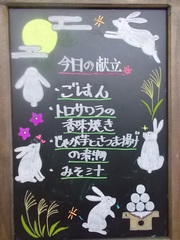 今日の献立
・ごはん
・トロサワラの
香味焼き
・じゃが芋とさつま揚げ
の煮物
・みそ汁